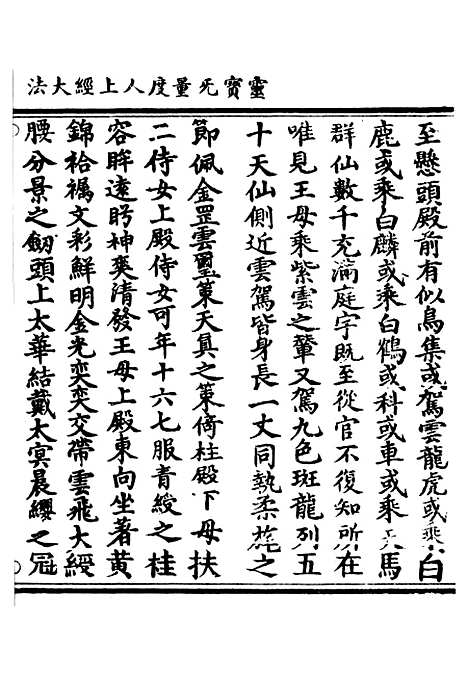 靈寶无量度人上經大法
至懸頭殿前有似鳥集或駕雲龍虎或乘白
鹿或乘白麟或乘白鶴或科或車或乘天馬
群仙數千充滿庭宇既至從官不復知所在
唯見王母乘紫雲之輦又駕九色斑龍列五
十天仙側近雲駕皆身長一丈同執柔旄之
節佩金罡雲璽策天真之策倚柱殿下母扶
二侍女上殿侍女可年十六七服青綾之桂
容眸遠眄神爽清發王母上殿東向坐著黃
錦袷襡文彩鮮明金光奕奕交帶雲飛大綬
腰分景之劔頭上太華結戴太寅晨纓之冠